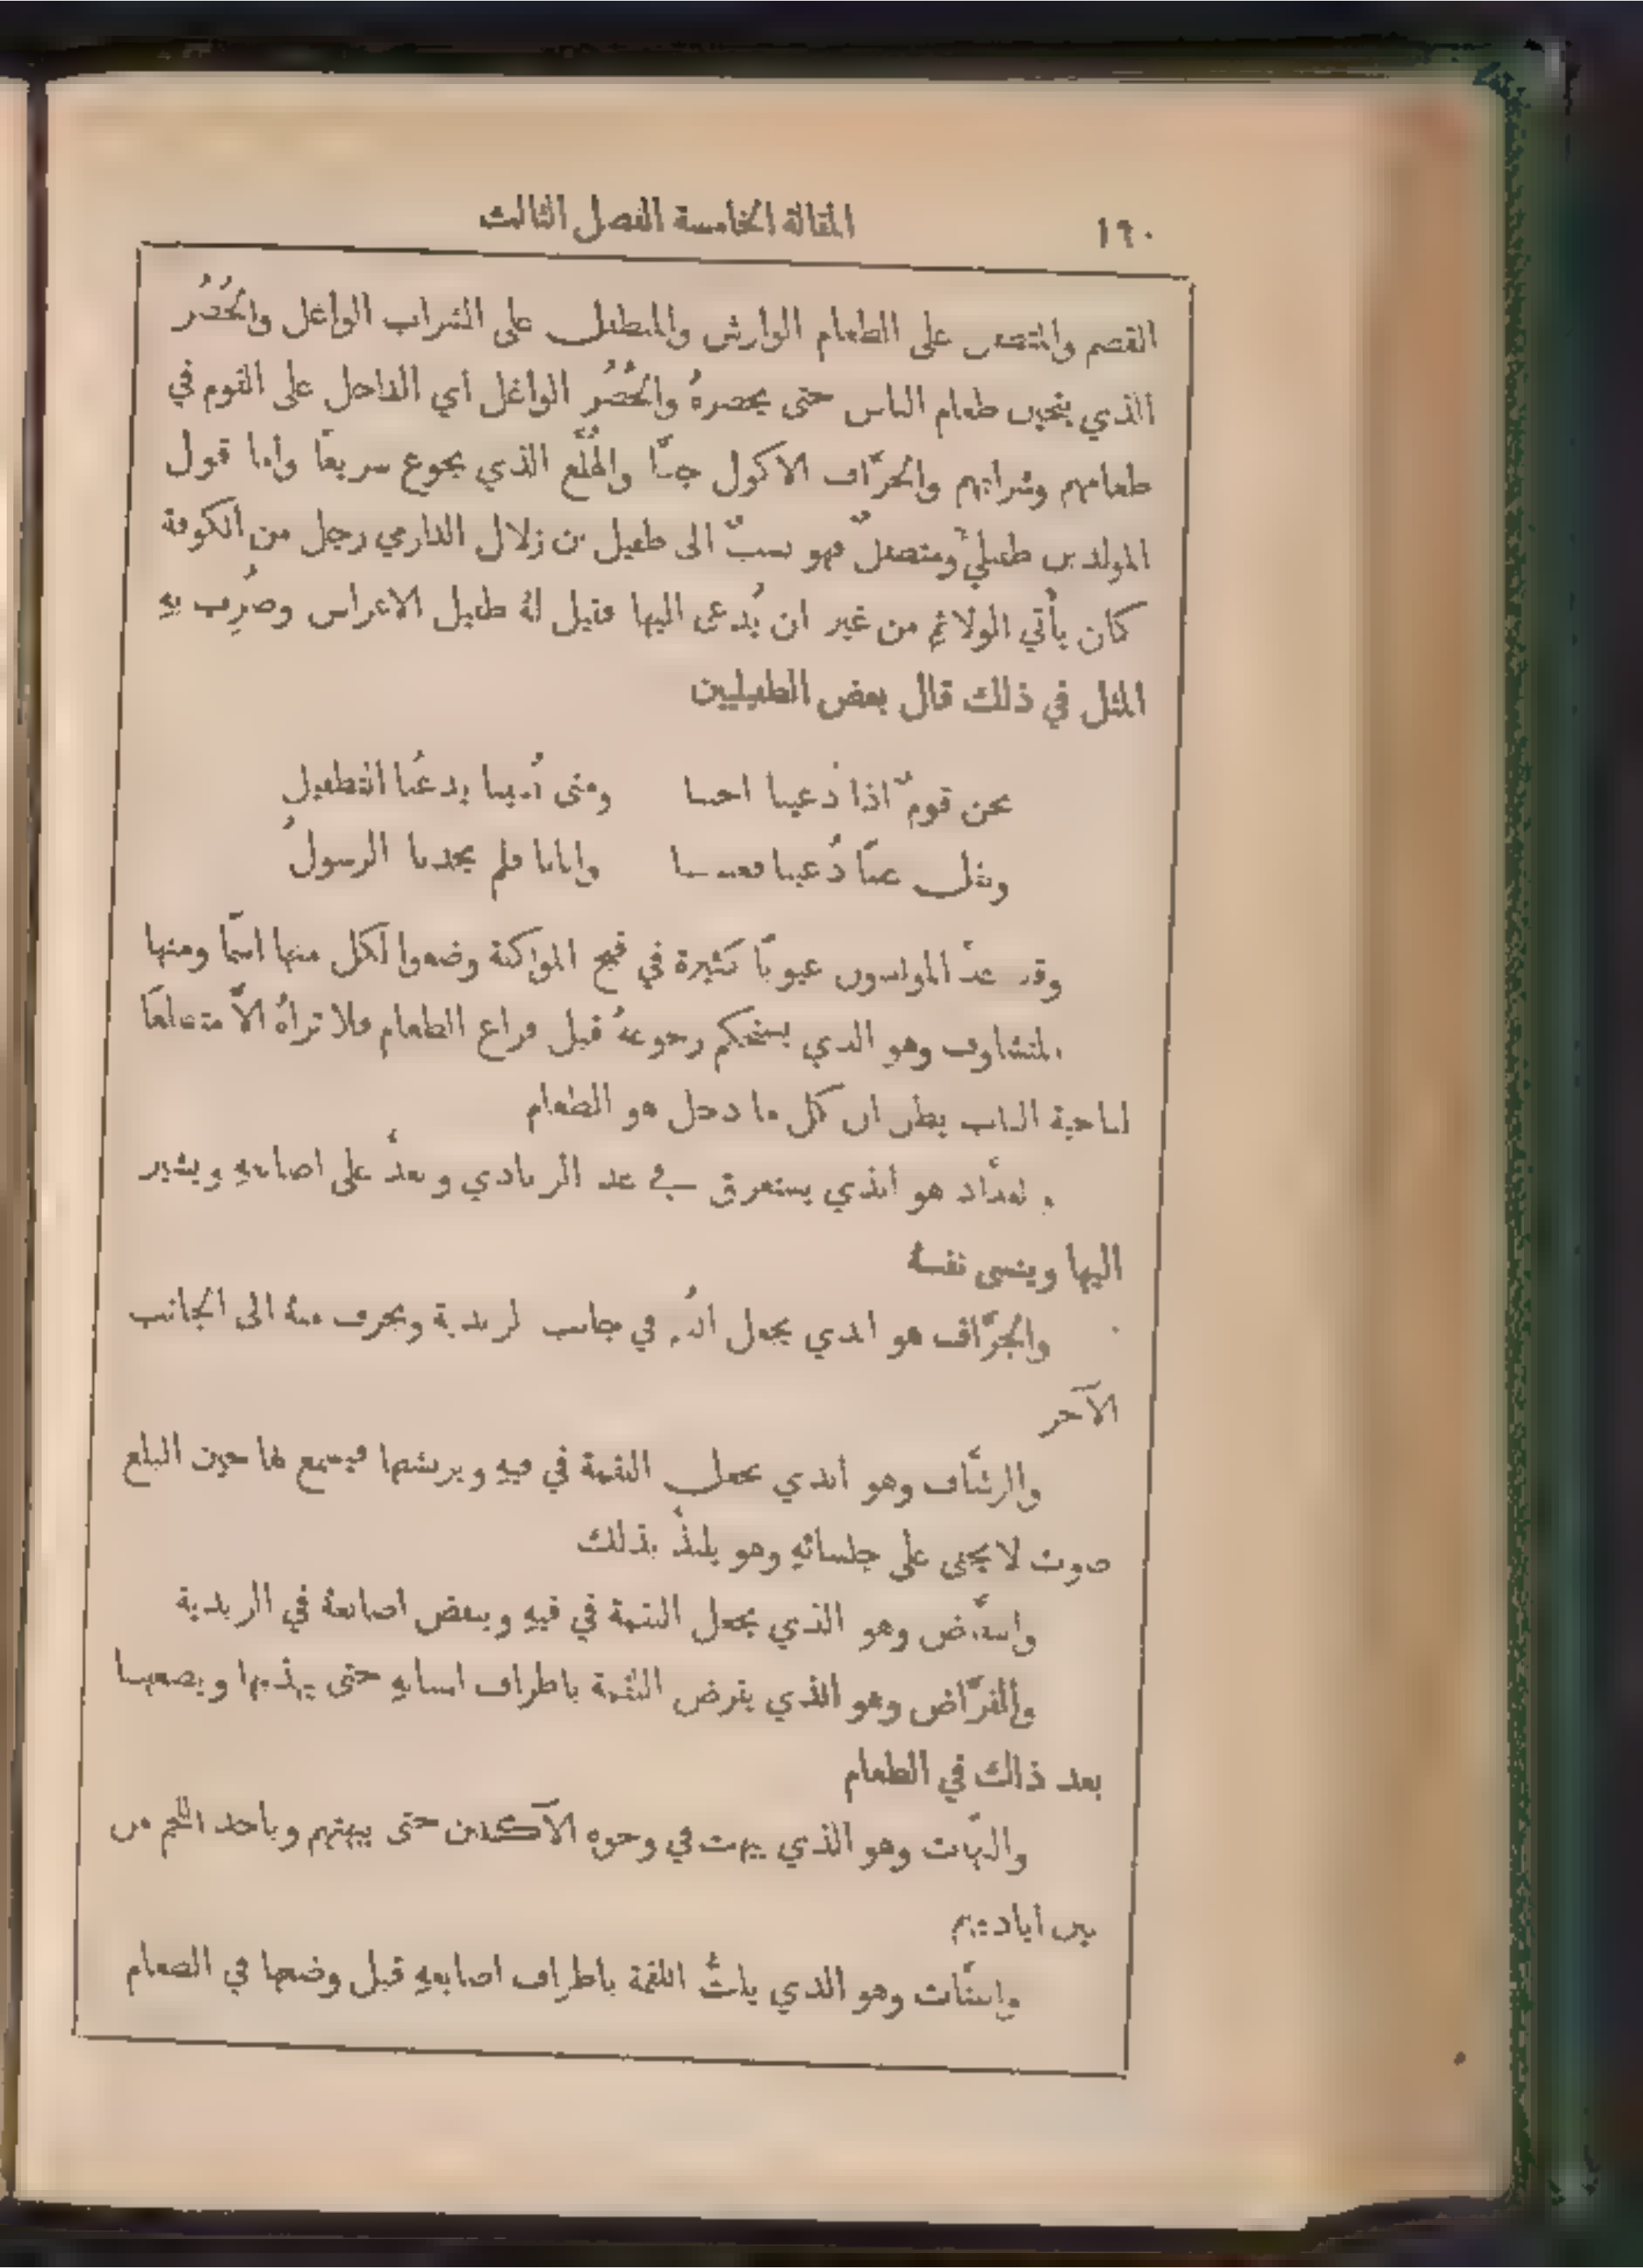 ١٦٠
المقالة الخامسة الفصل الثالث
القصم والمتصفل على الطعام الوارش والمطفل على الشراب الواغل والحُضُر
الذي يتحين طعام الناس حتى يحضرهُ والحُضُر الواغل اي الداخل على القوم في
طعامهم وشرابهم والجرّاف الاكول جدًّا والهُلَّع الذي يجوع سريعًا واما قول
المولدين طفيليٌّ ومتطفلٌ فهو نسبةٌ الى طفيل بن زلال الدارمي رجل من الكوفة
كان يأتي الولائم من غير ان يُدعى اليها فقيل لهُ طفيل الاعراس وضُرِب بهِ
المثل في ذلك قال بعض الطفيليين
نحن قومٌ اذا دُعينا اجبنا ومتى نُسينا يدعُنا التطفيل
ونقل علّنا دُعينا فغبنا واتانا فلم يجدنا الرسولُ
وقد عدّ المولدون عيوبًا كثيرة في قبح المواكلة وضعوا لكل منها اسمًا ومنها
المتشاوف وهو الذي يستحكم جوعهُ قبل فراغ الطعام فلا تراهُ الَّا متطلعًا
لناحية الباب يظن ان كل ما دخل هو الطعام
والعدَّاد هو الذي يستغرق في عد الزبادي ويعدُّ على اصابعهِ ويشير
اليها وينسى نفسهُ
والجرَّاف هو الذي يجعل اللقم في جانب الزبدية ويجرف منهُ الى الجانب
الآخر
والرشَّاف وهو الذي يجعل اللقمة في فيهِ ويرتشفها فيسمع لها حين البلع
صوت لا يخفى على جلسائهِ وهو يلتذُّ بذلك
والنفَّاض وهو الذي يجعل اللقمة في فيهِ وينفض اصابعهُ في الزبدية
والقرَّاض وهو الذي يقرض اللقمة باطراف اسنانهِ حتى يهذبها ويضعها
بعد ذلك في الطعام
والبهَّات وهو الذي يبهت في وجوه الآكلين حتى يبهتهم وياخذ اللحم من
بين اياديهم
واللتَّات وهو الذي يلتُّ اللقمة باطراف اصابعهِ قبل وضعها في الطعام